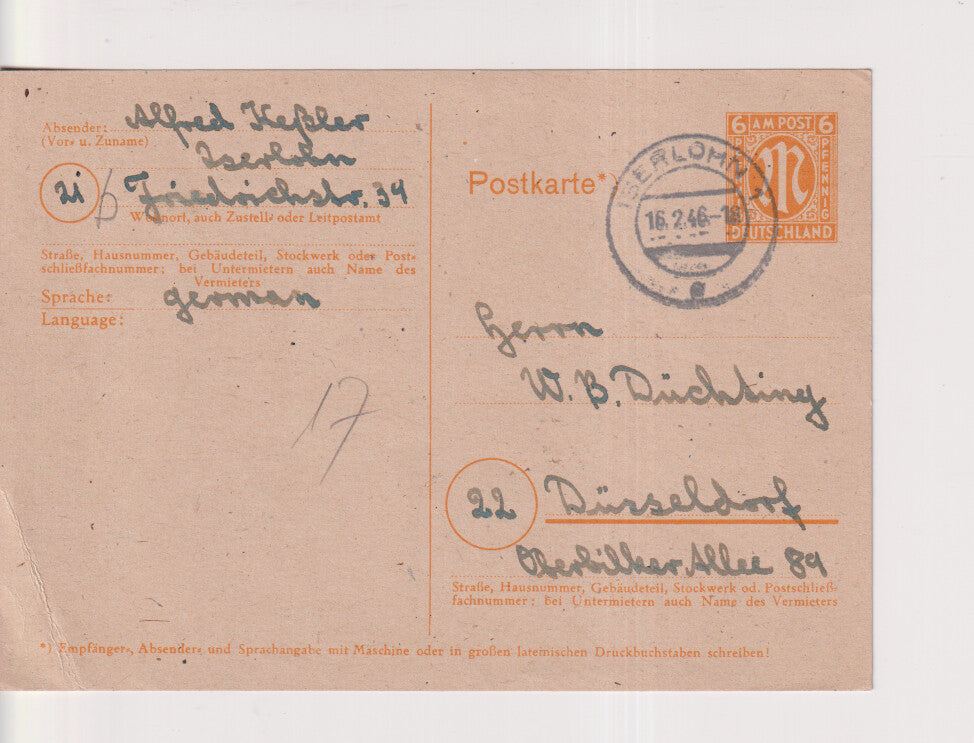 Absender: Alfred Keßler
(Vor= u. Zuname)
Iserlohn
21 b Friedrichstr. 34
Wohnort, auch Zustell= oder Leitpostamt
Straße, Hausnummer, Gebäudeteil, Stockwerk oder Post=
schließfachnummer; bei Untermietern auch Name des
Vermieters
Sprache: german
Language:
17
Postkarte*)
6 AM POST 6
PFENNIG
M
DEUTSCHLAND
ISERLOHN
16.2.46.-18
e
Herrn
W. B. Düchting
22 Düsseldorf
Oberbilker Allee 89
Straße, Hausnummer, Gebäudeteil, Stockwerk od. Postschließ=
fachnummer; bei Untermietern auch Name des Vermieters
*) Empfänger=, Absender= und Sprachangabe mit Maschine oder in großen lateinischen Druckbuchstaben schreiben!